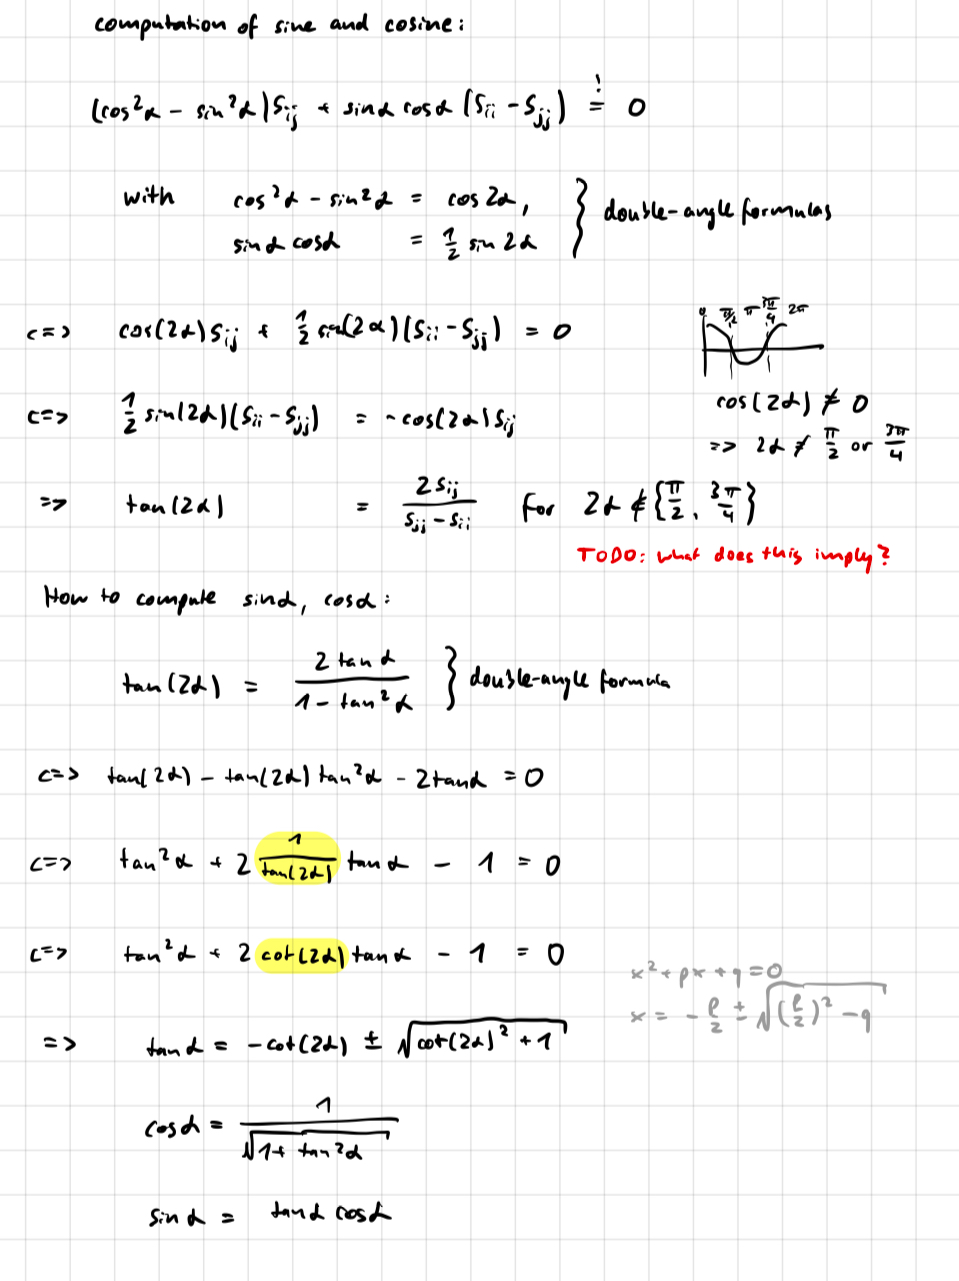 computation of sine and cosine:
(cos²α - sin²α)Sᵢⱼ + sinα cosα (Sᵢᵢ - Sⱼⱼ) =! 0
with cos²α - sin²α = cos 2α,
sinα cosα = 1/2 sin 2α } double-angle formulas
0 π/2 π 3π/4 2π
<=> cos(2α)Sᵢⱼ + 1/2 sin(2α)(Sᵢᵢ - Sⱼⱼ) = 0
<=> 1/2 sin(2α)(Sᵢᵢ - Sⱼⱼ) = -cos(2α)Sᵢⱼ
cos(2α) ≠ 0
=> 2α ≠ π/2 or 3π/4
=> tan(2α) = 2Sᵢⱼ/(Sⱼⱼ - Sᵢᵢ) for 2α ∉ {π/2, 3π/4}
TODO: what does this imply?
How to compute sinα, cosα:
tan(2α) = 2 tanα/(1 - tan²α) } double-angle formula
<=> tan(2α) - tan(2α) tan²α - 2tanα = 0
<=> tan²α + 2 1/tan(2α) tanα - 1 = 0
<=> tan²α + 2 cot(2α) tanα - 1 = 0
x² + px + q = 0
x = -p/2 ± √((p/2)² - q)
=> tanα = -cot(2α) ± √(cot(2α)² + 1)
cosα = 1/√(1 + tan²α)
sinα = tanα cosα